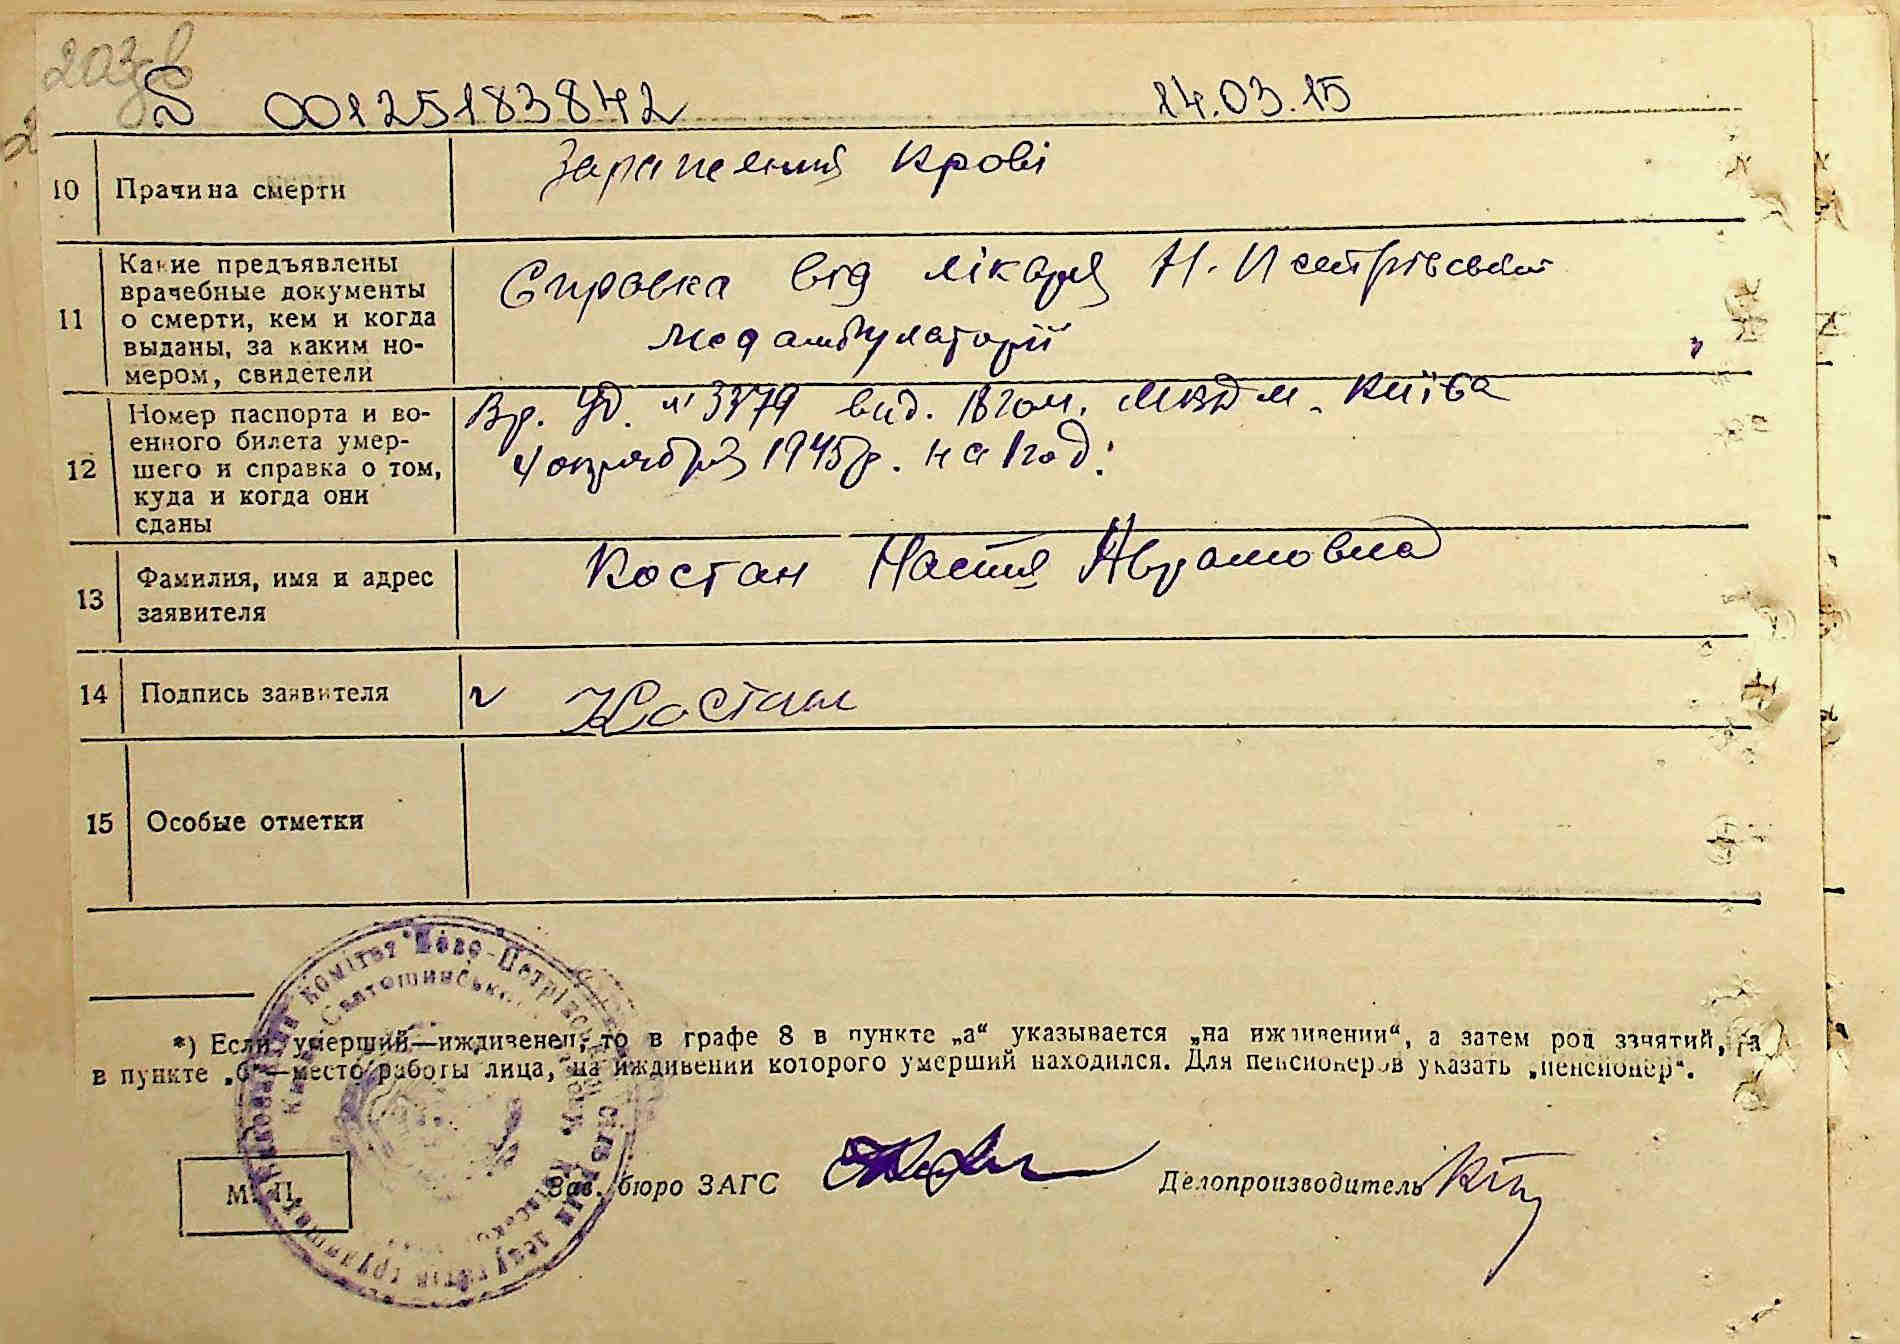 203
S 00125183842 14.03.15
10 Прачина смерти Зараження Крові
11 Какие предъявлены врачебные документы о смерти, кем и когда выданы, за каким номером, свидетели
Справка від лікаря Н. Петрівської
медамбулаторії
12 Номер паспорта и военного билета умершего и справка о том, куда и когда они сданы
Вр. Уд. № 3379 вид. 18 гом. м. Київа
4 октября 1945р. на 1 год.
13 Фамилия, имя и адрес заявителя
Костан Настя Аврамовна
14 Подпись заявителя Костан
15 Особые отметки
*) Если умерший—иждивенец, то в графе 8 в пункте „а“ указывается „на иждивении“, а затем род занятий, а
в пункте „б“—место работы лица, на иждивении которого умерший находился. Для пенсионеров указать „пенсионер“.
М. П. Зав. бюро ЗАГС Делопроизводитель
комітет Ново-Петрівської сільської ради депутатів трудящих
Святошинського Київської